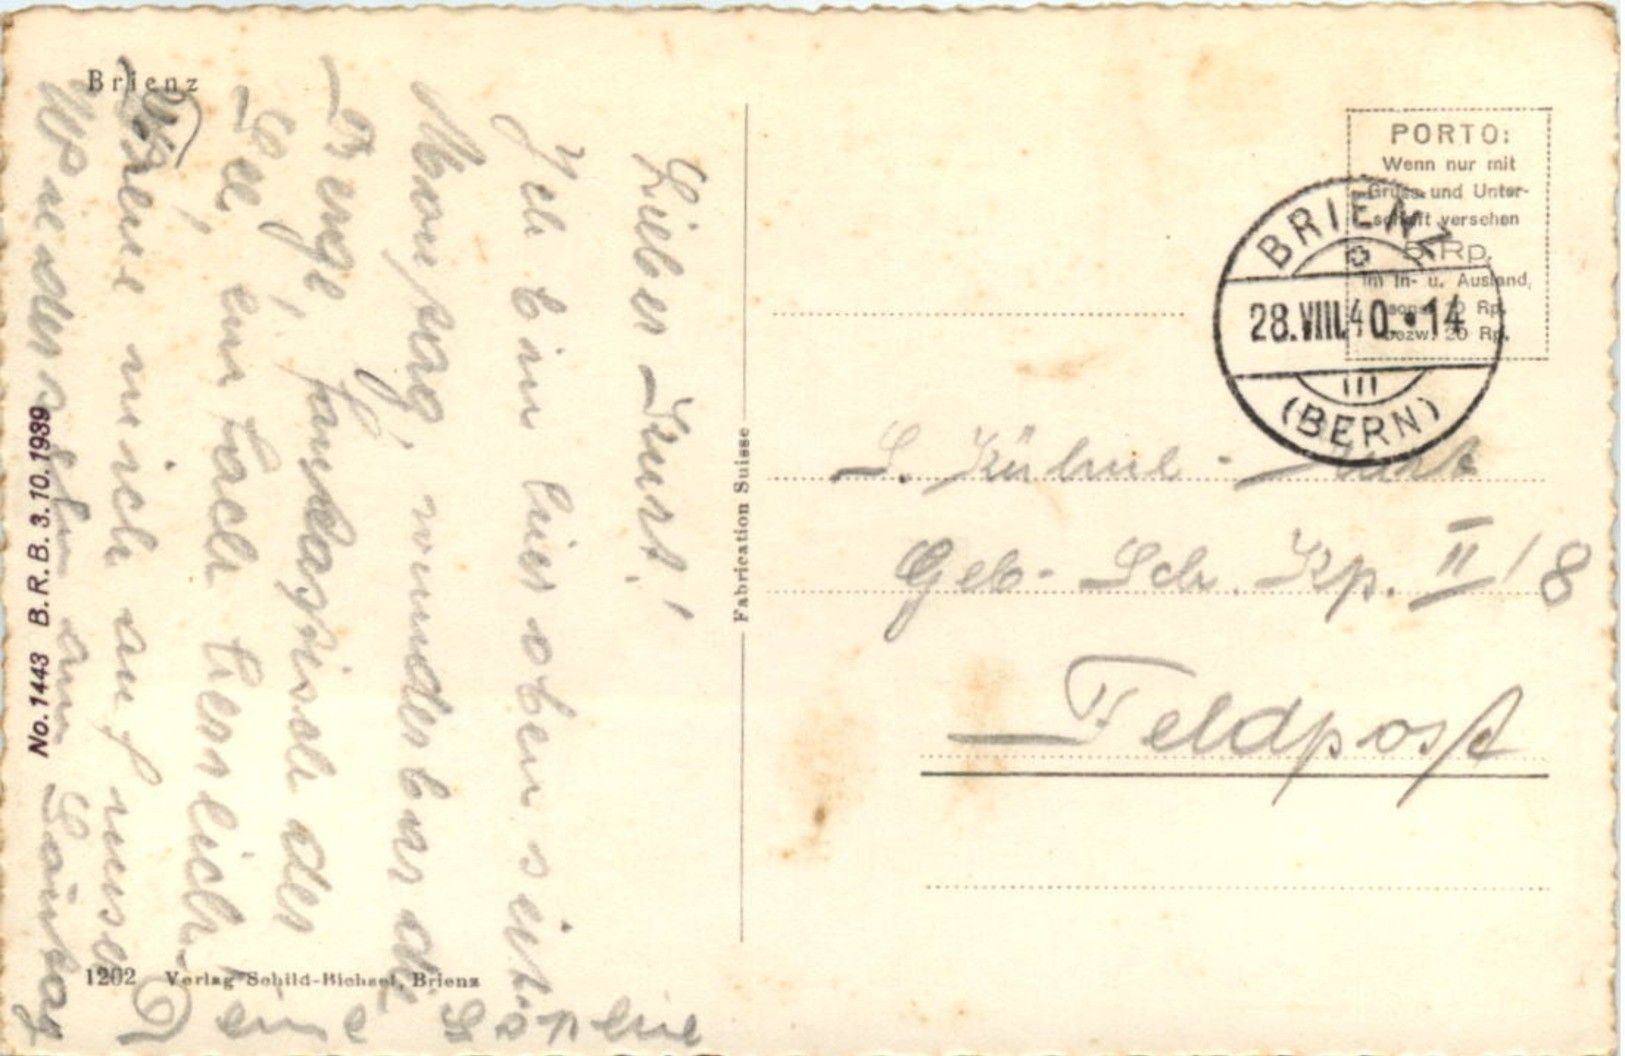 Brienz
Lieber Kurt!
Ich bin hier oben seit
Montag, wunderbar die
Berge, fantastisch der
See, einfach herrlich.
Freue mich auf unser
Wiedersehn am Sonntag
Deine Sophie
No. 1443 B. R. B. 3. 10. 1939
1202 Verlag Schild-Bichsel, Brienz
Fabrication Suisse
PORTO:
Wenn nur mit
Gruss und Unter-
schrift versehen
5 Rp.
im In- u. Ausland,
sonst 10 Rp.
bezw. 20 Rp.
BRIENZ
28.VIII.40.·14
III
(BERN)
S. Kühne - 
Geb. Sch. Kp. II / 8
Feldpost